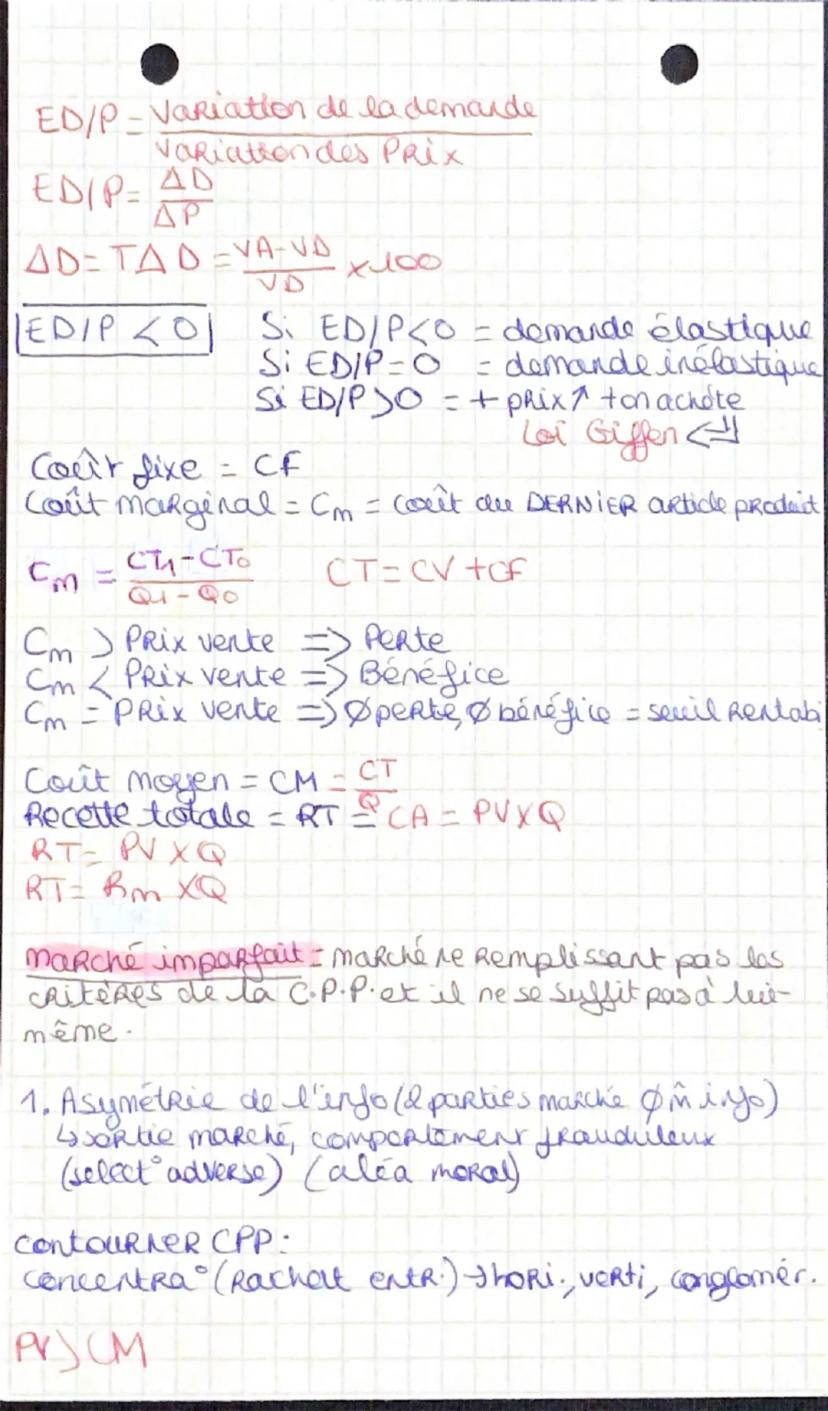 ED/P = Variation de la demande / Variation des Prix
ED/P = ΔD / ΔP
ΔD = TΔD = VA-VD / VD × 100
ED/P < 0 Si ED/P<0 = demande élastique
Si ED/P=0 = demande inélastique
Si ED/P>0 = + prix↗ + on achète
Loi Giffen <=
Coût fixe = CF
Coût marginal = Cm = coût du DERNIER article produit
Cm = CT1-CT0 / Q1-Q0 CT = CV + CF
Cm > Prix vente => Perte
Cm < Prix vente => Bénéfice
Cm = Prix vente => Ø perte, Ø bénéfice = seuil Rentabi
Coût moyen = CM = CT / Q
Recette totale = RT = CA = PV×Q
RT = PV × Q
RT = Rm × Q
Marché imparfait = marché ne Remplissant pas les
critères de la C.P.P. et il ne se suffit pas à lui-
même.
1. Asymétrie de l'info (2 parties marché Ø m̂ info)
↳ sortie marché, comportement frauduleux
(select° adverse) (aléa moral)
contourner CPP :
concentra° (Rachat entr.) → hori., verti, conglomér.
PV > CM